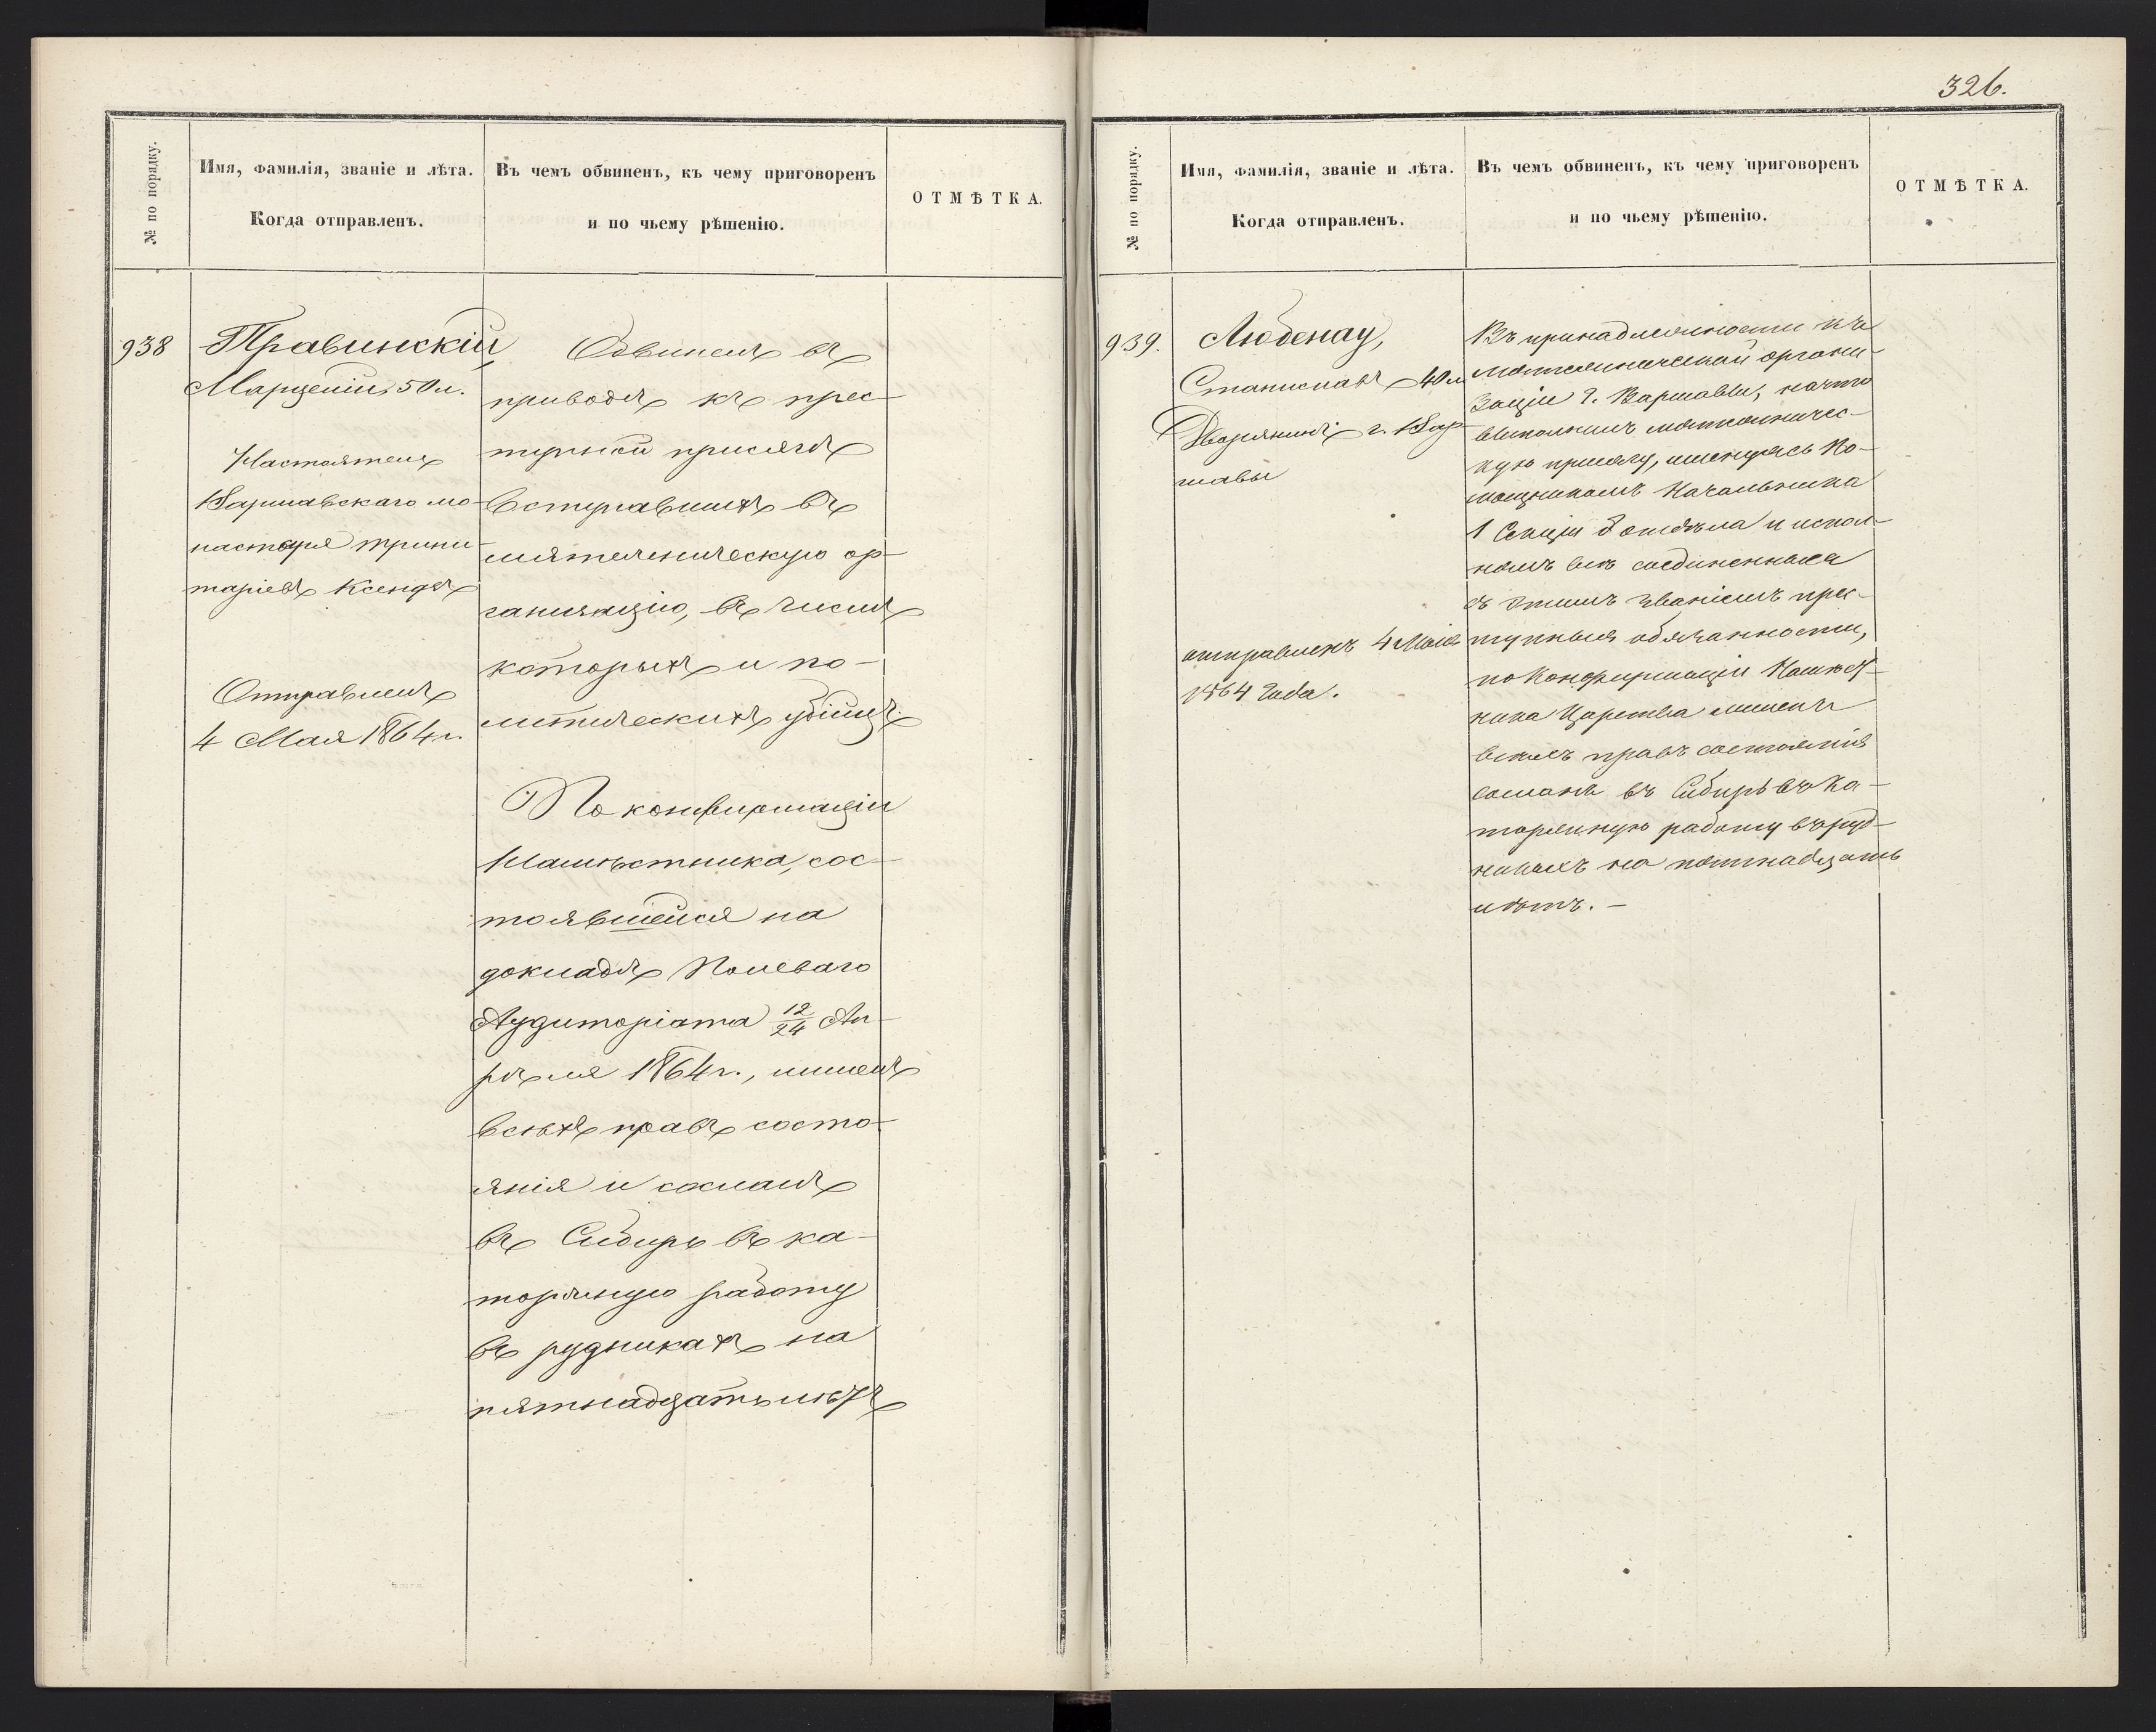 № по порядку.
Имя, фамилія, званіе и лѣта.
Когда отправленъ.
Въ чемъ обвиненъ, къ чему приговоренъ
и по чьему рѣшенію.
ОТМѢТКА.
938
Правинскій,
Марцелій, 50 л.
Настоятель
Варшавскаго мо-
настыря трини-
таріевъ Ксендзъ
Отправленъ
4 Мая 1864 г.
Обвиненъ въ
приводѣ къ прес-
тупной присягѣ
вступавшихъ въ
мятежническую ор-
ганизацію, въ числѣ
которыхъ и по-
литическихъ убійцъ.
По конфирмаціи
Намѣстника, сос-
тоявшейся на
докладѣ Полеваго
Аудиторіата 12/24 Ап-
рѣля 1864 г., лишенъ
всѣхъ правъ состо-
янія и сосланъ
въ Сибирь въ ка-
торжную работу
въ рудникахъ на
пятнадцать лѣтъ
326.
№ по порядку.
Имя, фамилія, званіе и лѣта.
Когда отправленъ.
Въ чемъ обвиненъ, къ чему приговоренъ
и по чьему рѣшенію.
ОТМѢТКА.
939.
Любенау,
Станиславъ 40 л
Дворянинъ г. Вар-
шавы
отправленъ 4 Маія
1864 года.
Въ принадлежности къ
мятежнической органи-
заціи г. Варшавы, на что
выполнилъ мятежничес-
кую присягу, именуясь По-
мощникомъ Начальника
1 Секціи отдѣла и испол-
нялъ всѣ соединенныя
съ этимъ званіемъ прес-
тупныя обязанности,
по Конфирмаціи Намѣст-
ника Царства лишенъ
всѣхъ правъ состоянія
сосланъ въ Сибирь въ Ка-
торжную работу въ руд-
никахъ на пятнадцать
лѣтъ. –